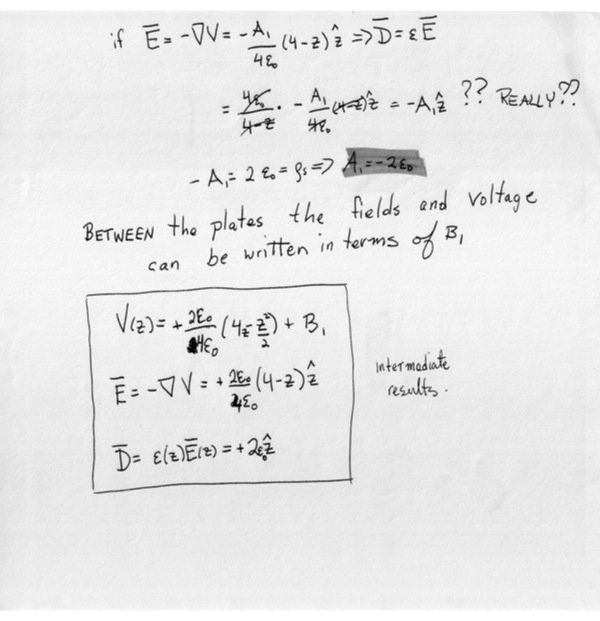 if E̅ = -∇V = -A₁/4ε₀ (4-z) ẑ => D̅ = ε E̅
= 4ε₀/4-z · - A₁/4ε₀ (4-z) ẑ = -A₁ẑ ?? REALLY??
- A₁ = 2 ε₀ = ρs => A₁ = -2ε₀
BETWEEN the plates the fields and voltage
can be written in terms of B₁
V(z) = + 2ε₀/4ε₀ (4z - z²/2) + B₁
E̅ = -∇V = + 2ε₀/4ε₀ (4-z) ẑ
intermediate
results.
D̅ = ε(z)E̅(z) = +2ε₀ẑ